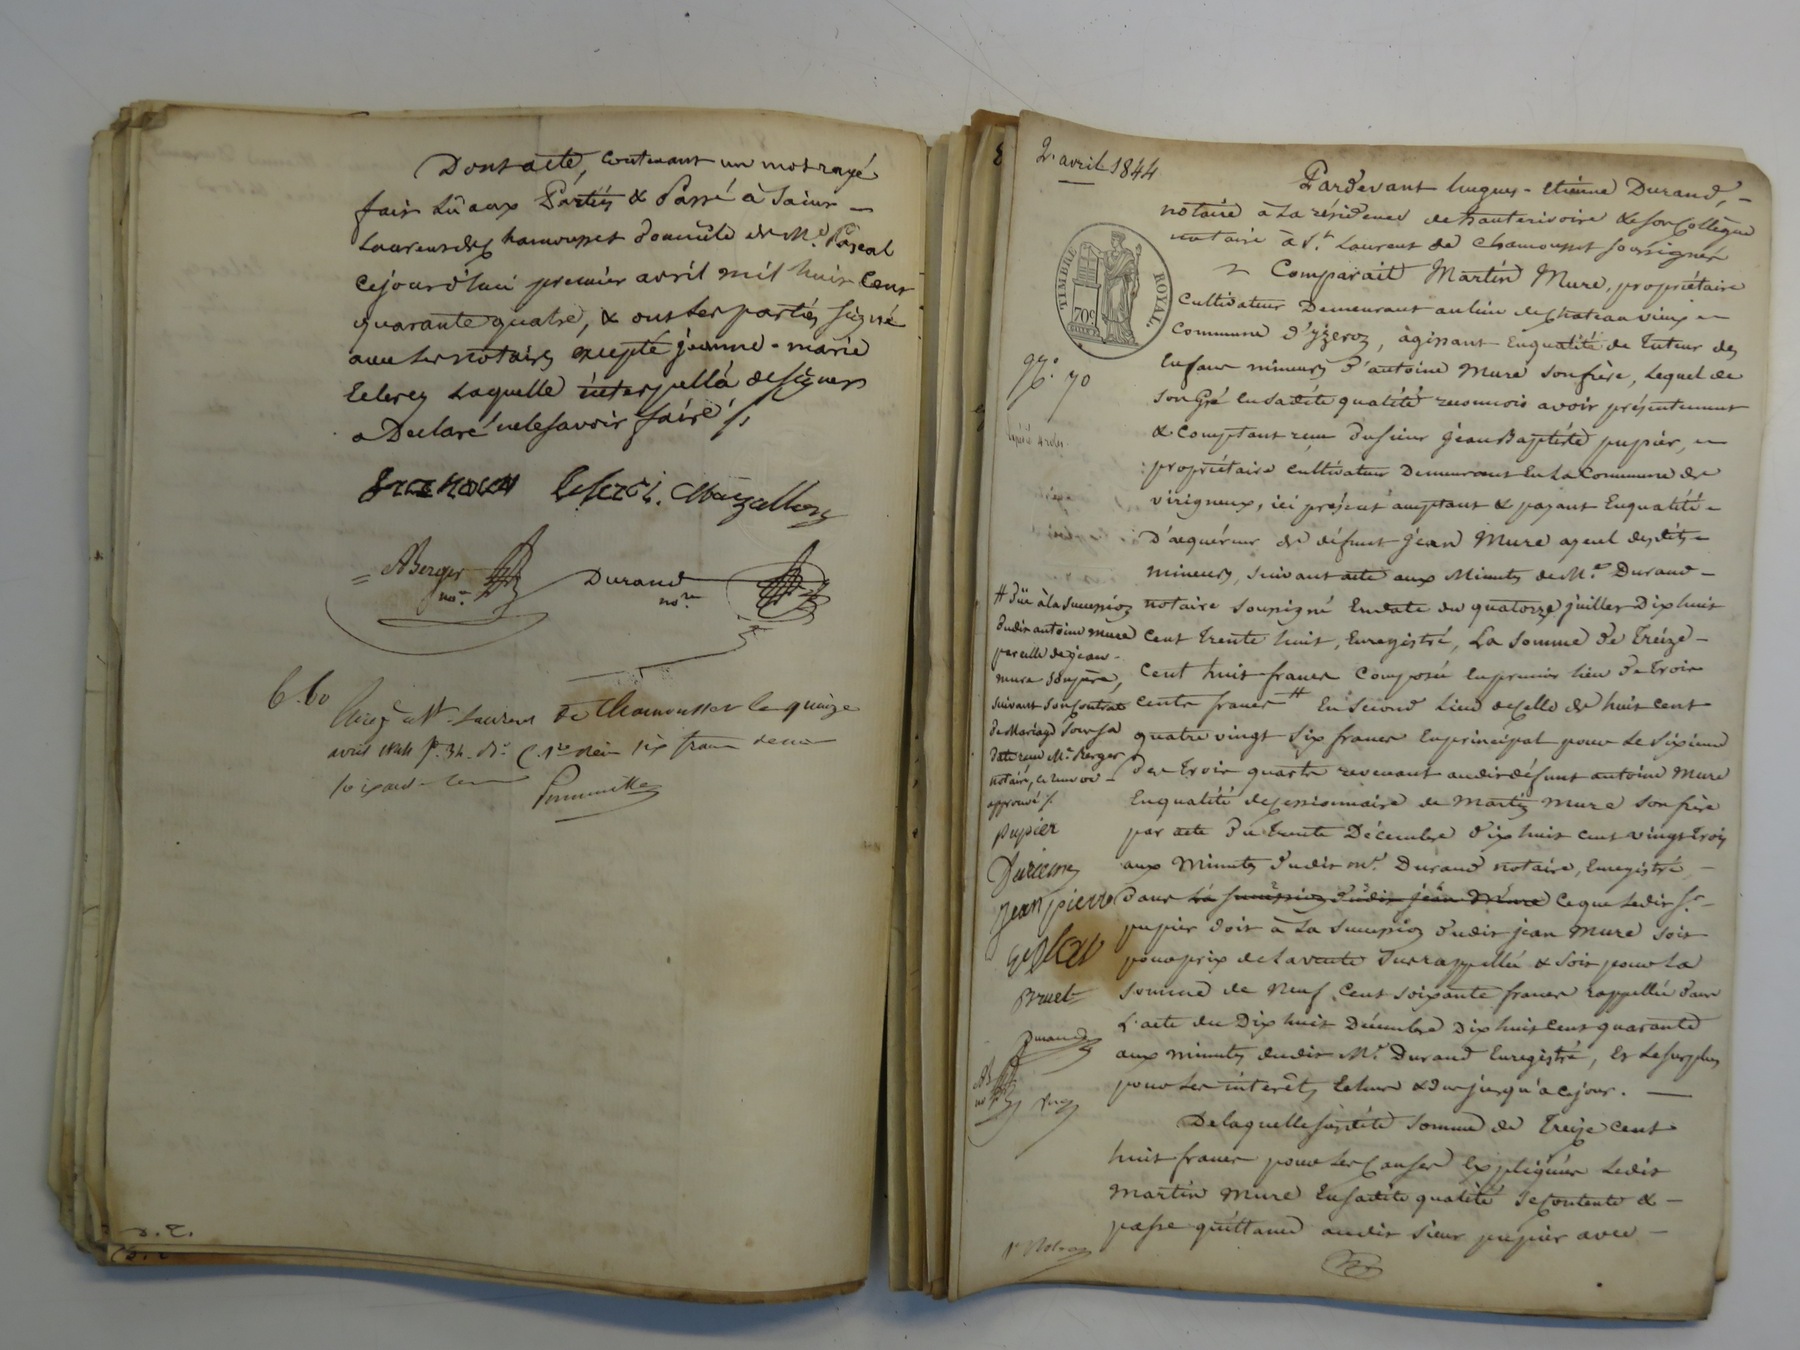 Dont acte, contenant un mot rayé
fait Lû aux Parties & Passé à Saint —
Laurent de Chamousset domicile de Me Pascal
cejourd'hui premier avril mil huit Cent
quarante quatre, & ont les parties signé
avec les notaires excepté jeanne-marie
Leclerc Laquelle interpellée de signer
a Déclaré ne le savoir faire ./.
ABerger
nore
Durand
nore
6.60
Enregé à St Laurent de Chamousset le quinze
avril 1844 fo. 34. Ro. C. 1re Reçu six francs
soixante cent
2. avril 1844
Pardevant hugues-etienne Durand, —
notaire à La résidence de hauterivoire & son Collègue
notaire à St Laurent de Chamousset soussignés
Comparait Martin Mure, propriétaire
Cultivateur Demeurant au lieu de chateau vieux —
Commune d'yzeron, agissant En qualité de Tuteur des
Enfans mineurs d'antoine Mure son frère, Lequel de
son Gré En sadite qualité reconnoit avoir présentement
& comptant reçu du sieur jean Baptiste pupier, —
propriétaire cultivateur Demeurant En La Commune de
virigneux, ici présent acceptant & payant En qualité —
D'acquéreur de défunt jean Mure ayeul desdits —
mineurs, suivant acte aux Minutes de Me Durand —
notaire soussigné En date du quatorze juillet Dix huit
Cent Trente huit, Enregistré, La Somme de Treize —
Cent huit francs Composée En premier lieu de Trois
Cents francs # En second Lieu de Celle de huit Cent
quatre vingt Six francs En principal pour Le Sixième
Des Trois quarts revenant audit défunt antoine Mure
En qualité de Cessionnaire de Martin Mure Son frère
par acte du Trente Décembre dix huit cent vingt Trois
aux Minutes dudit Me Durand notaire, Enregistré —
dans La Succession dudit jean Mure Ce que Ledit Sr —
pupier doit à La Succession dudit jean Mure Soit
pour prix de La vente Susrappellée & Soit pour La
Somme de Neuf Cent Soixante francs rappellée dans
L'acte du Dix huit Décembre Dix huit Cent quarante
aux minutes dudit Me Durand Enregistré, Et Le Surplus
pour Les intérêts Echus & dus jusqu'à ce jour. —
De laquelle susdite Somme de Treize cent
huit francs pour Les Causes Expliquées Ledit
Martin Mure En sadite qualité Se Contente & —
passe quittance audit Sieur pupier avec —
TIMBRE ROYAL.
70c
# Düe à la Succession
dudit antoine mure
par celle de jean
mure Son père,
Suivant Son Contrat
de Mariage Sous Sa
Date reçu Me Berger
notaire, le renvoi —
approuvé ./.
Pupier
jean pierre
Bruel
Durand